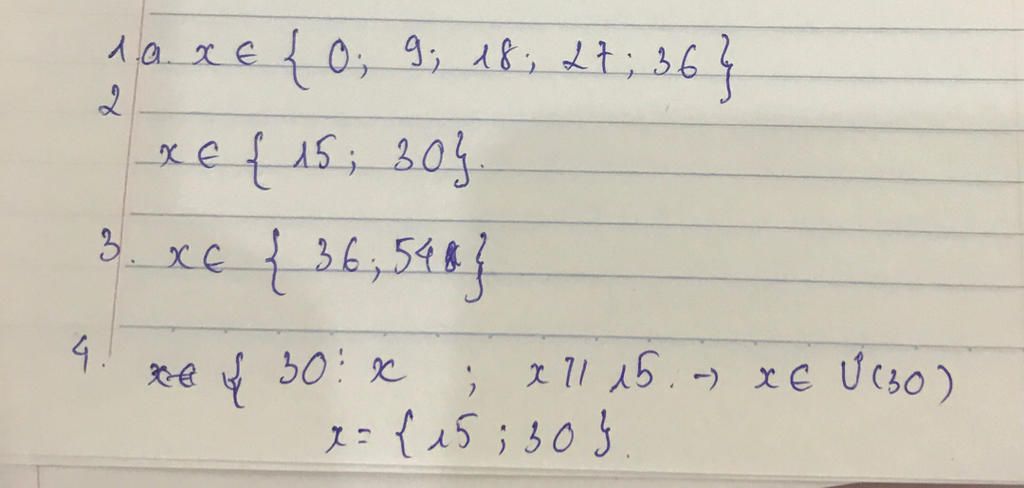 1.a. x ∈ { 0; 9; 18; 27; 36 }
2
x ∈ { 15; 30 }.
3. x ∈ { 36; 54 }
4. x ∈ { 30 ⋮ x ; x ⩾ 15. → x ∈ Ư(30)
x = { 15 ; 30 }.